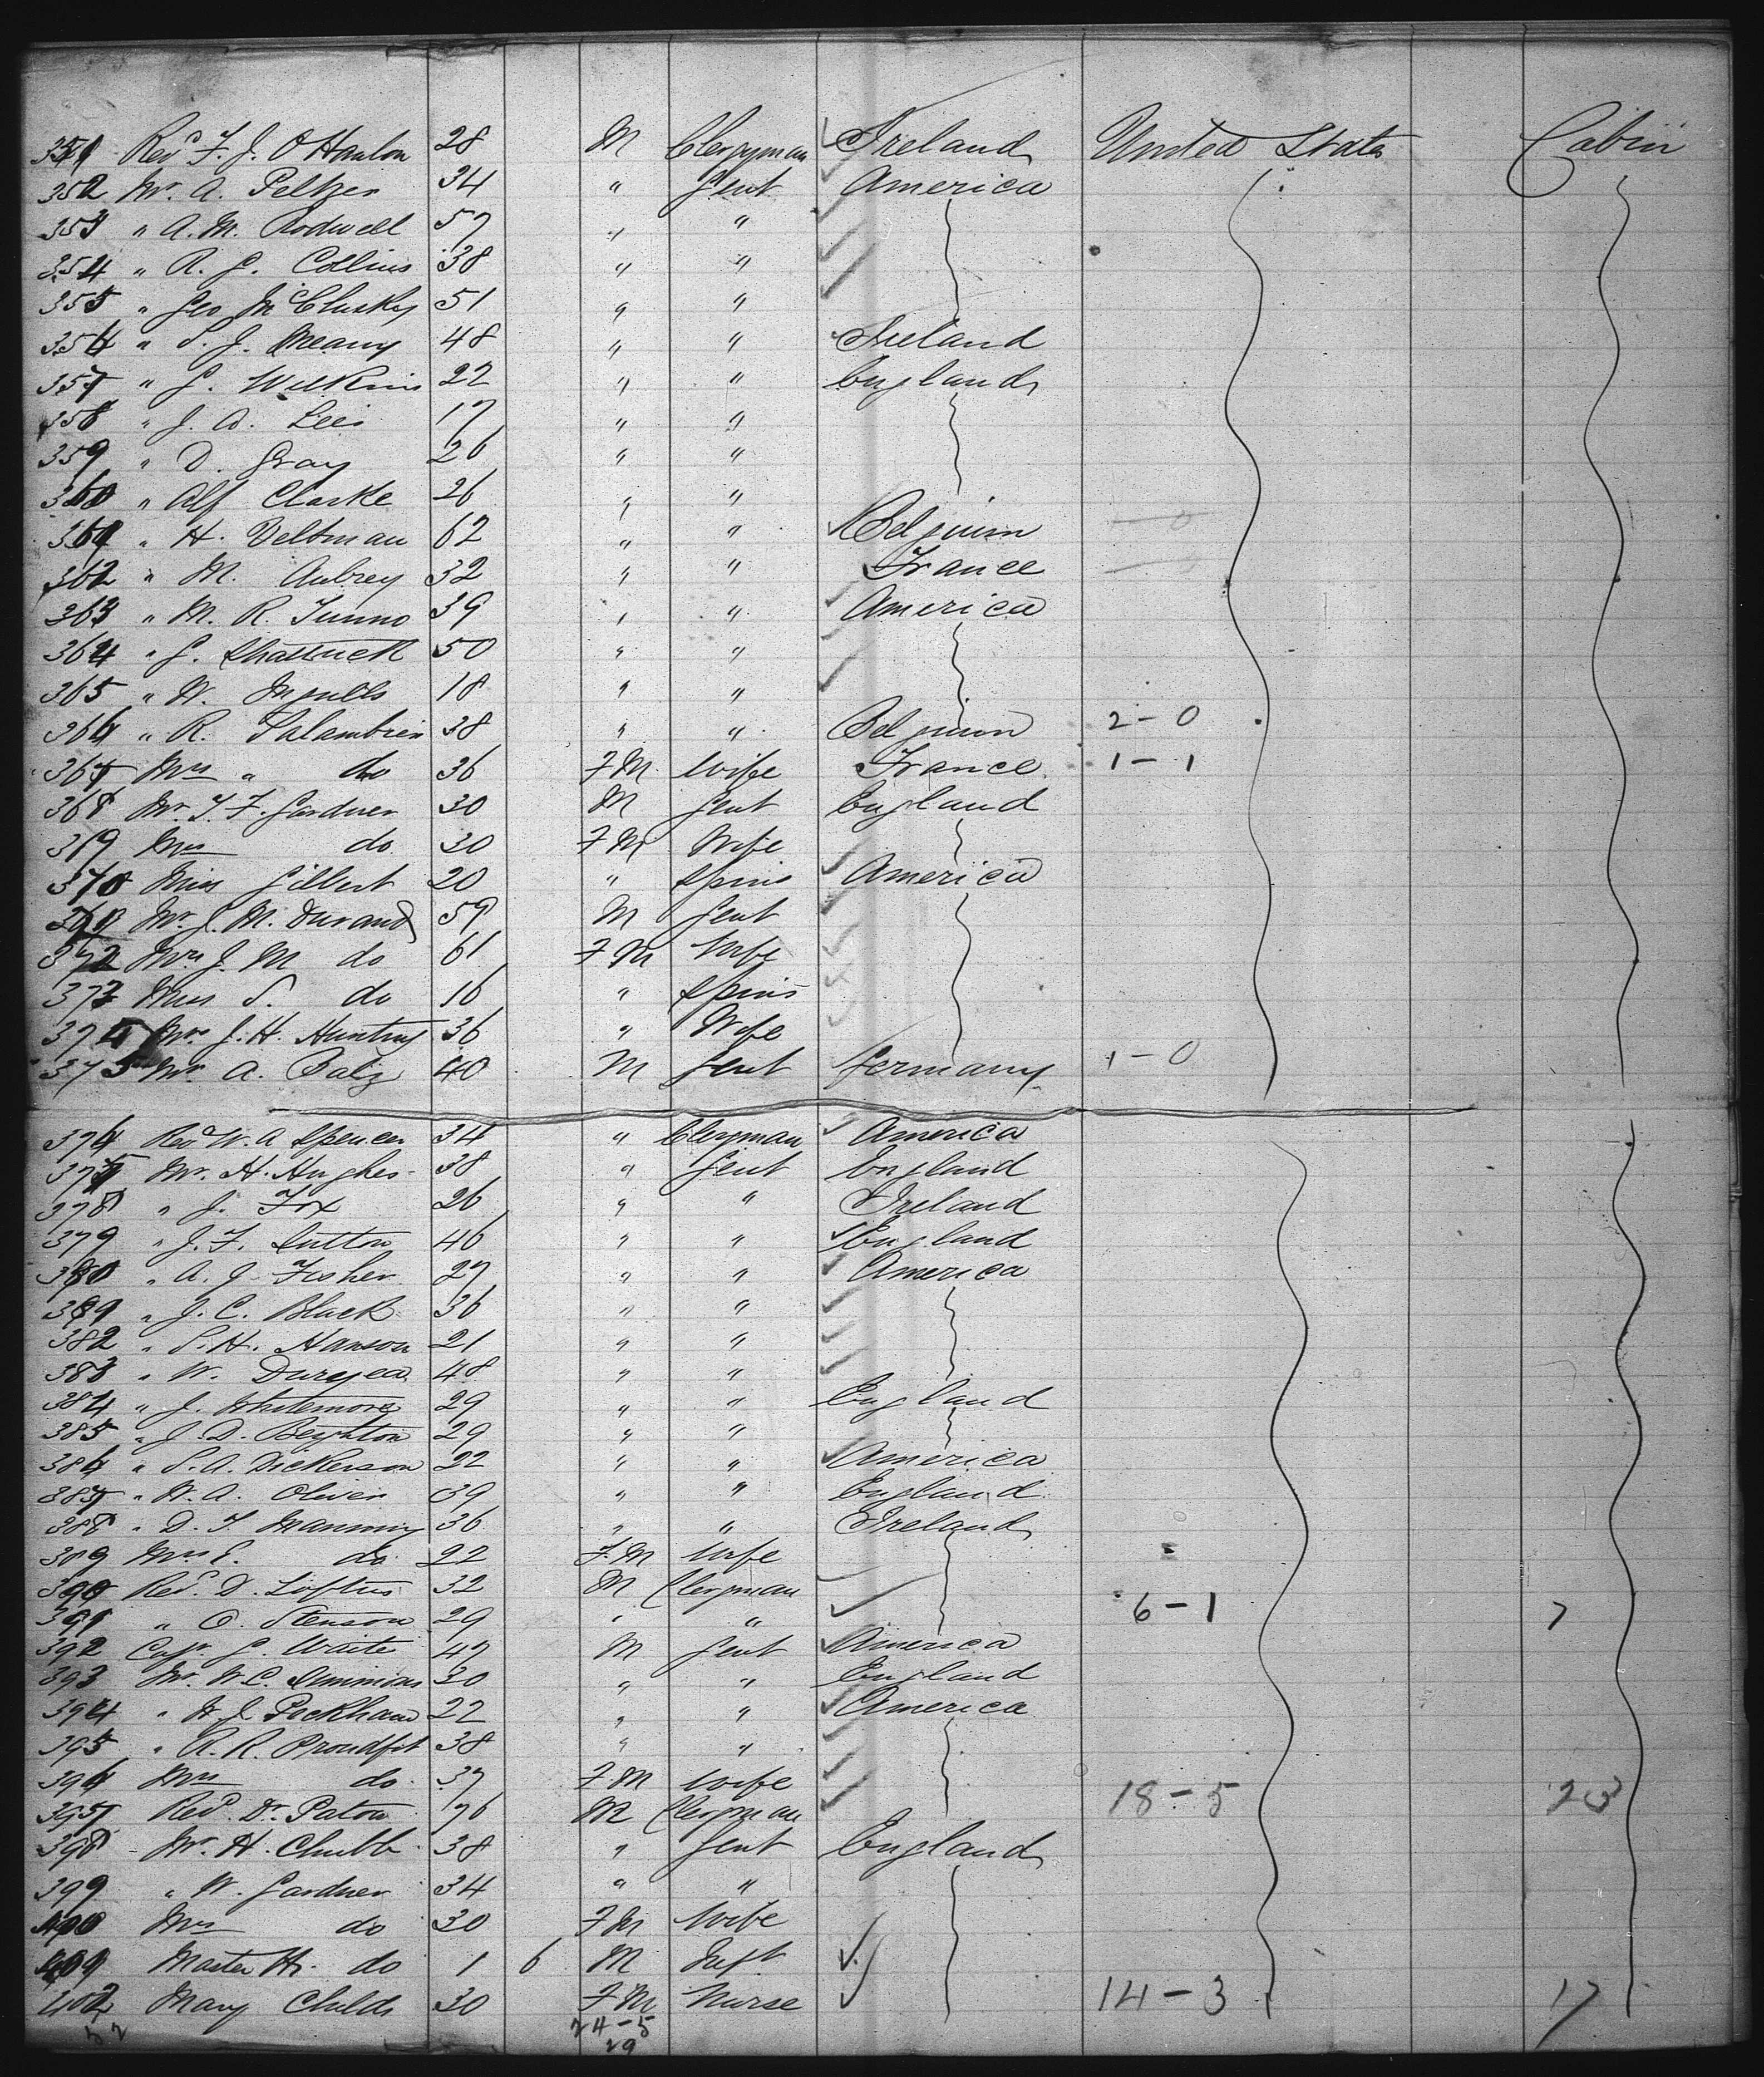 351 Revd F. J. O'Hanlon 28 M Clergyman Ireland United States Cabin
352 Mr. A. Peltzer 34 " Gent America
353 " A. M. Rodwell 57 " "
354 " R. G. Collins 38 " "
355 " Geo McClusky 51 " "
356 " S. J. Meany 48 " " Ireland
357 " G. Wilkins 22 " " England
358 " J. A. Lees 17 " "
359 " D. Gray 26 " "
360 " Alf Clarke 26 " "
361 " H. Veltman 62 " " Belgium
362 " M. Aubrey 32 " " France
363 " M. R. 39 " " America
364 " G. Shattuck 50 " "
365 " W. Ingalls 18 " "
366 " R. Salambier 38 " " Belgium 2-0
367 Mrs " do 36 FM Wife France 1-1
368 Mr. T. F. Gardner 30 M Gent England
369 Mrs do 30 FM Wife
370 Miss Gilbert 20 " Spins America
371 Mr. J. M. Durand 59 M Gent
372 Mrs J. M do 61 FM Wife
373 Miss S. do 16 " Spins
374 Mrs J. H. 36 " Wife
375 Mr. A. Balz 40 M Gent Germany 1-0
376 Revd W. A Spencer 34 " Clergman America
377 Mr. H. Hughes 38 " Gent England
378 " J. Fox 26 " " Ireland
379 " J. F. Sutton 46 " " England
380 " A. J. Fisher 27 " " America
381 " J. C. Black 36 " "
382 " S. H. Hanson 21 " "
383 " W. Duryea 48 " "
384 " J. Whitemore 29 " " England
385 " J. D. Beighton 29 " "
386 " S. A. Dickerson 22 " " America
387 " W. A. Oliver 39 " " England
388 " D. T. Manning 36 " " Ireland
389 Mrs E. do 22 F.M Wife
390 Revd. D. Loftus 32 M Clergman
391 " O. Stenson 29 " " 6-1 7
392 Capt G. Waite 47 M Gent America
393 Mr. W. C. Simmons 30 " " England
394 " W. J. Peckham 22 " " America
395 " A. R. Proudfit 38 " "
396 Mrs do 37 FM Wife
397 Revd. Dr. Paton 76 M Clergman 18-5 23
398 Mr. H. Chubb 38 " Gent England
399 " W. Gardner 34 " "
400 Mrs do 30 FM Wife
401 Master H. do 1 6 M Inft
402 Mary Childs 30 FM Nurse 14-3 17
52 24-5
29